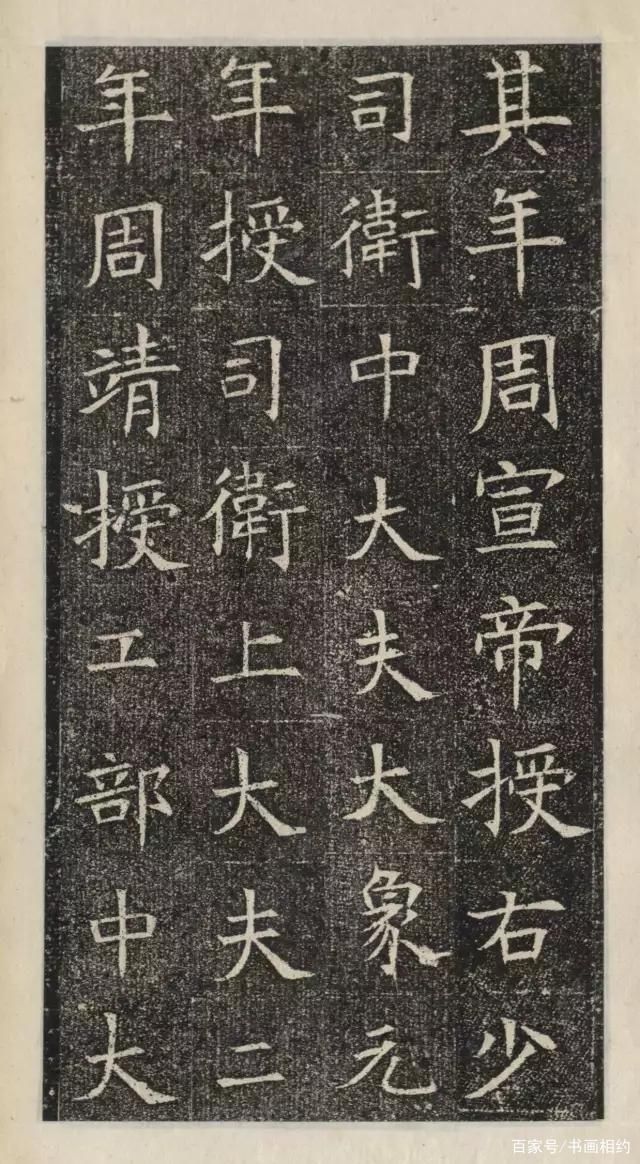 其年周宣帝授右少
司衛中大夫大象元
年授司衛上大夫二
年周靖授工部中大
百家号/书画相约